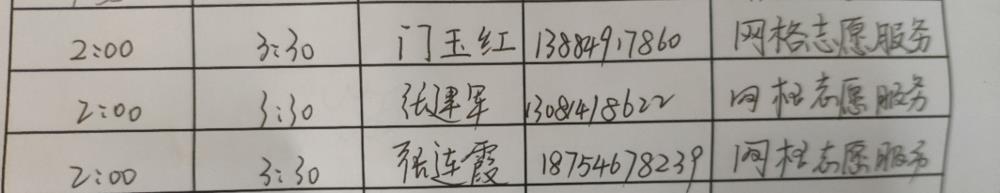 2:00 3:30 门玉红 13884917860 网格志愿服务
2:00 3:30 张建军 13081418622 网格志愿服务
2:00 3:30 张连霞 18754678239 网格志愿服务